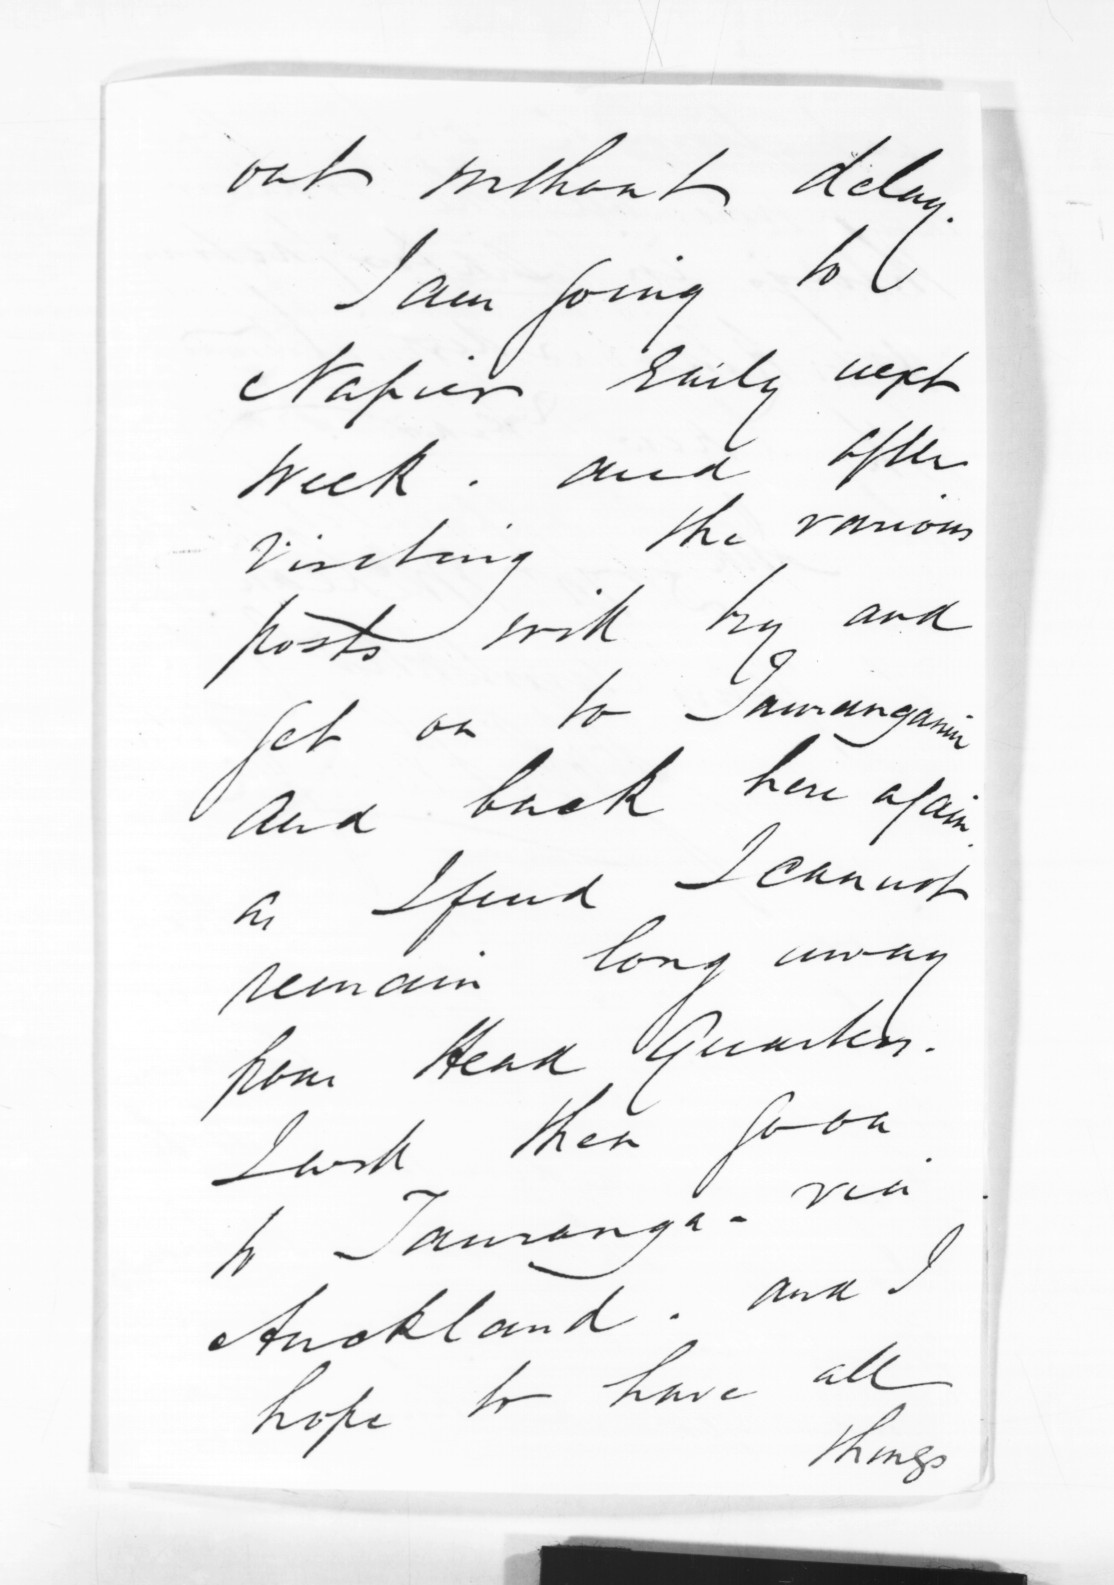 out without delay.
I am going to
Napier Early next
week. and after
visiting the various
posts will try and
get on to
and back here again.
as I find I cannot
remain long away
from Head Quarters.
I will then go on
to Tauranga - via
Auckland. and I
hope to have all
things